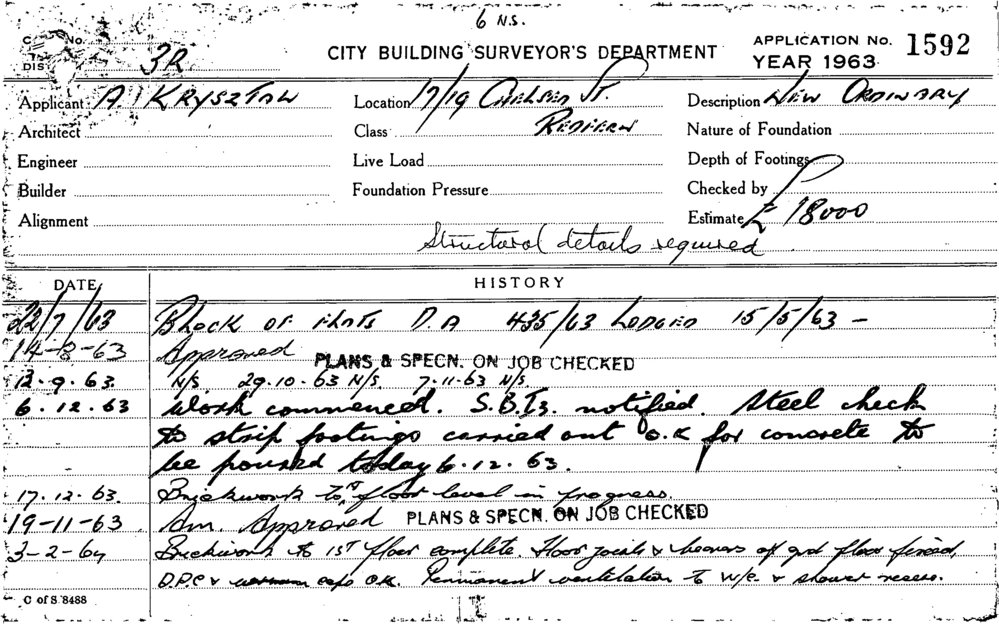 6 N.S.
C No. 3R CITY BUILDING SURVEYOR'S DEPARTMENT APPLICATION No. 1592
DIS YEAR 1963
Applicant A KRYSZTOW Location 17/19 CHELSEA ST. Description NEW ORDINARY
Architect Class REDFERN Nature of Foundation
Engineer Live Load Depth of Footings
Builder Foundation Pressure Checked by
Alignment Estimate £ 18000
Structural details required
DATE HISTORY
22/7/63 BLOCK OF FLATS D.A 435/63 LODGED 15/5/63 -
14-8-63 Approved PLANS & SPECN. ON JOB CHECKED
12.9.63. N/S 29.10.63 N/S. 7.11.63 N/S.
6.12.63 Work commenced. S.B.I's. notified. Steel check
to strip footings carried out O.K for concrete to
be poured today 6.12.63.
17.12.63. Brickwork to 1st floor level in progress.
19-11-63 Am. Approved PLANS & SPECN. ON JOB CHECKED
3-2-64 Brickwork to 1ST floor complete. Floor joists & bearers of grd floor fixed,
D.P.C & caps OK. Permanent ventilation to W/C. & shower recess.
C of S 8488